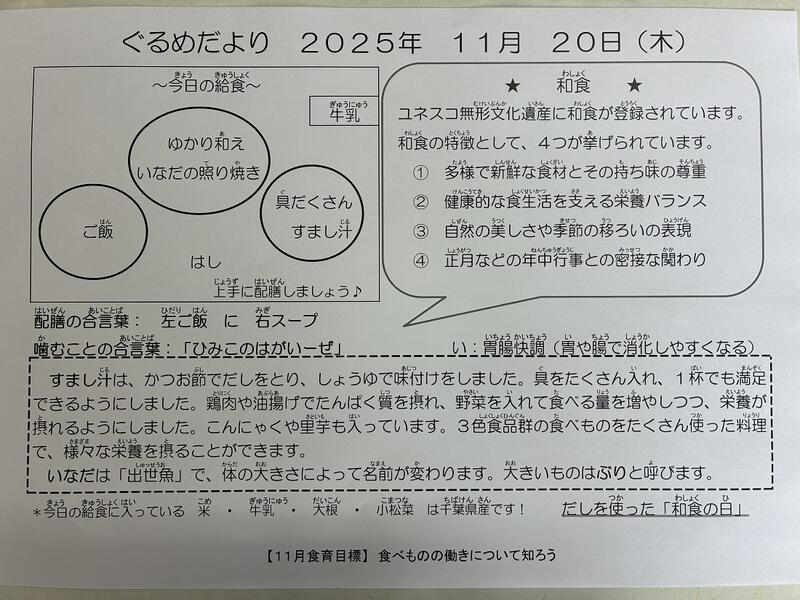 ぐるめだより　２０２５年　１１月　２０日（木）
～今日の給食～
牛乳
ゆかり和え
いなだの照り焼き
具だくさん
すまし汁
ご飯
はし
上手に配膳しましょう♪
★　和食　★
ユネスコ無形文化遺産に和食が登録されています。
和食の特徴として、４つが挙げられています。
①　多様で新鮮な食材とその持ち味の尊重
②　健康的な食生活を支える栄養バランス
③　自然の美しさや季節の移ろいの表現
④　正月などの年中行事との密接な関わり
配膳の合言葉：　左ご飯　に　右スープ
噛むことの合言葉：「ひみこのはがいーぜ」　い：胃腸快調（胃や腸で消化しやすくなる）
すまし汁は、かつお節でだしをとり、しょうゆで味付けをしました。具をたくさん入れ、１杯でも満足
できるようにしました。鶏肉や油揚げでたんぱく質を摂れ、野菜を入れて食べる量を増やしつつ、栄養が
摂れるようにしました。こんにゃくや里芋も入っています。３色食品群の食べものをたくさん使った料理
で、様々な栄養を摂ることができます。
いなだは「出世魚」で、体の大きさによって名前が変わります。大きいものはぶりと呼びます。
＊今日の給食に入っている　米　・　牛乳　・　大根　・　小松菜　は千葉県産です！　だしを使った「和食の日」
【１１月食育目標】食べものの働きについて知ろう